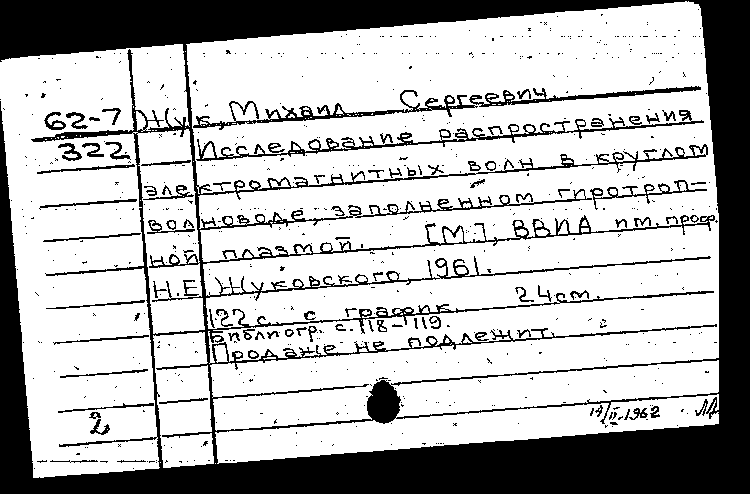 62-7 Жук, Михаил Сергеевич.
322 Исследование распространения
электромагнитных волн в круглом
волноводе, заполненном гиротроп=
ной плазмой. [М.], ВВИА им. проф.
Н.Е. Жуковского, 1961.
122 с. с график. 24 см.
Библиогр. с. 118-119.
Продаже не подлежит.
2
14/II-1962